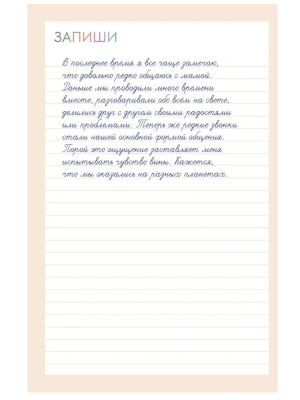 ЗАПИШИ
В последнее время я все чаще замечаю,
что довольно редко общаюсь с мамой.
Раньше мы проводили много времени
вместе, разговаривали обо всём на свете,
делились друг с другом своими радостями
или проблемами. Теперь же редкие звонки
стали нашей основной формой общения.
Порой это ощущение заставляет меня
испытывать чувство вины. Кажется,
что мы оказались на разных планетах.